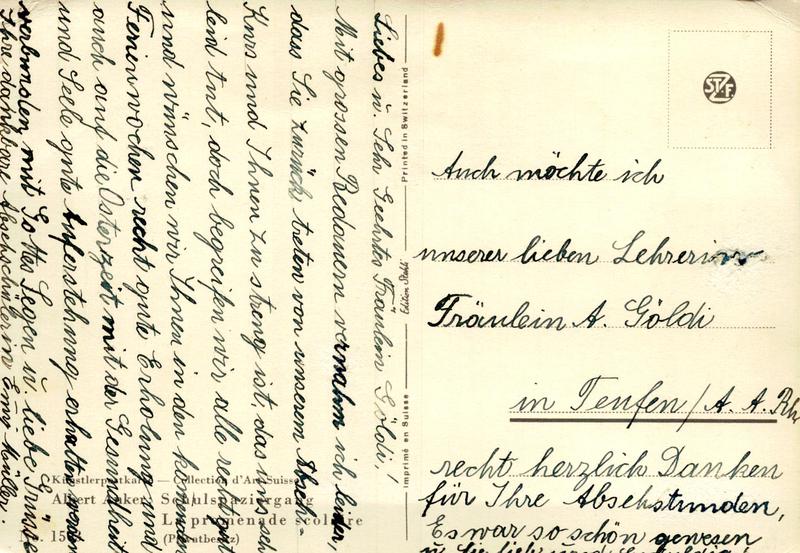 Liebes u. Sehr Geehrtes Fräulein Göldi!
Mit grossen Bedauern vernahm ich leider,
dass Sie zurück treten von unserem Abseh-
Kurs und Ihnen zu streng ist, das uns sehr
leid tut, doch begreifen wir alle recht gut
und wünschen wir Ihnen in den kommen
Ferienwochen recht gute Erholung und
auch auf die Osterzeit mit der Gesundheit
und Seele gute Auferstehung erhalten
mit Gottes Segen u. liebe Grüsse
Ihre dankbare Absehschülerin Emmy Müller.
Printed in Switzerland
Edition Stehli
Imprimé en Suisse
Künstlerpostkarte — Collection d'Art Suisse
Albert Anker: Schulspaziergang
La promenade scolaire
No. 15 (Privatbesitz)
ST.F.
Auch möchte ich
unserer lieben Lehrerin
Fräulein A. Göldi
in Teufen / A. A. Rh
recht herzlich Danken
für Ihre Absehstunden,
Es war so schön gewesen
u. Sie lieb und